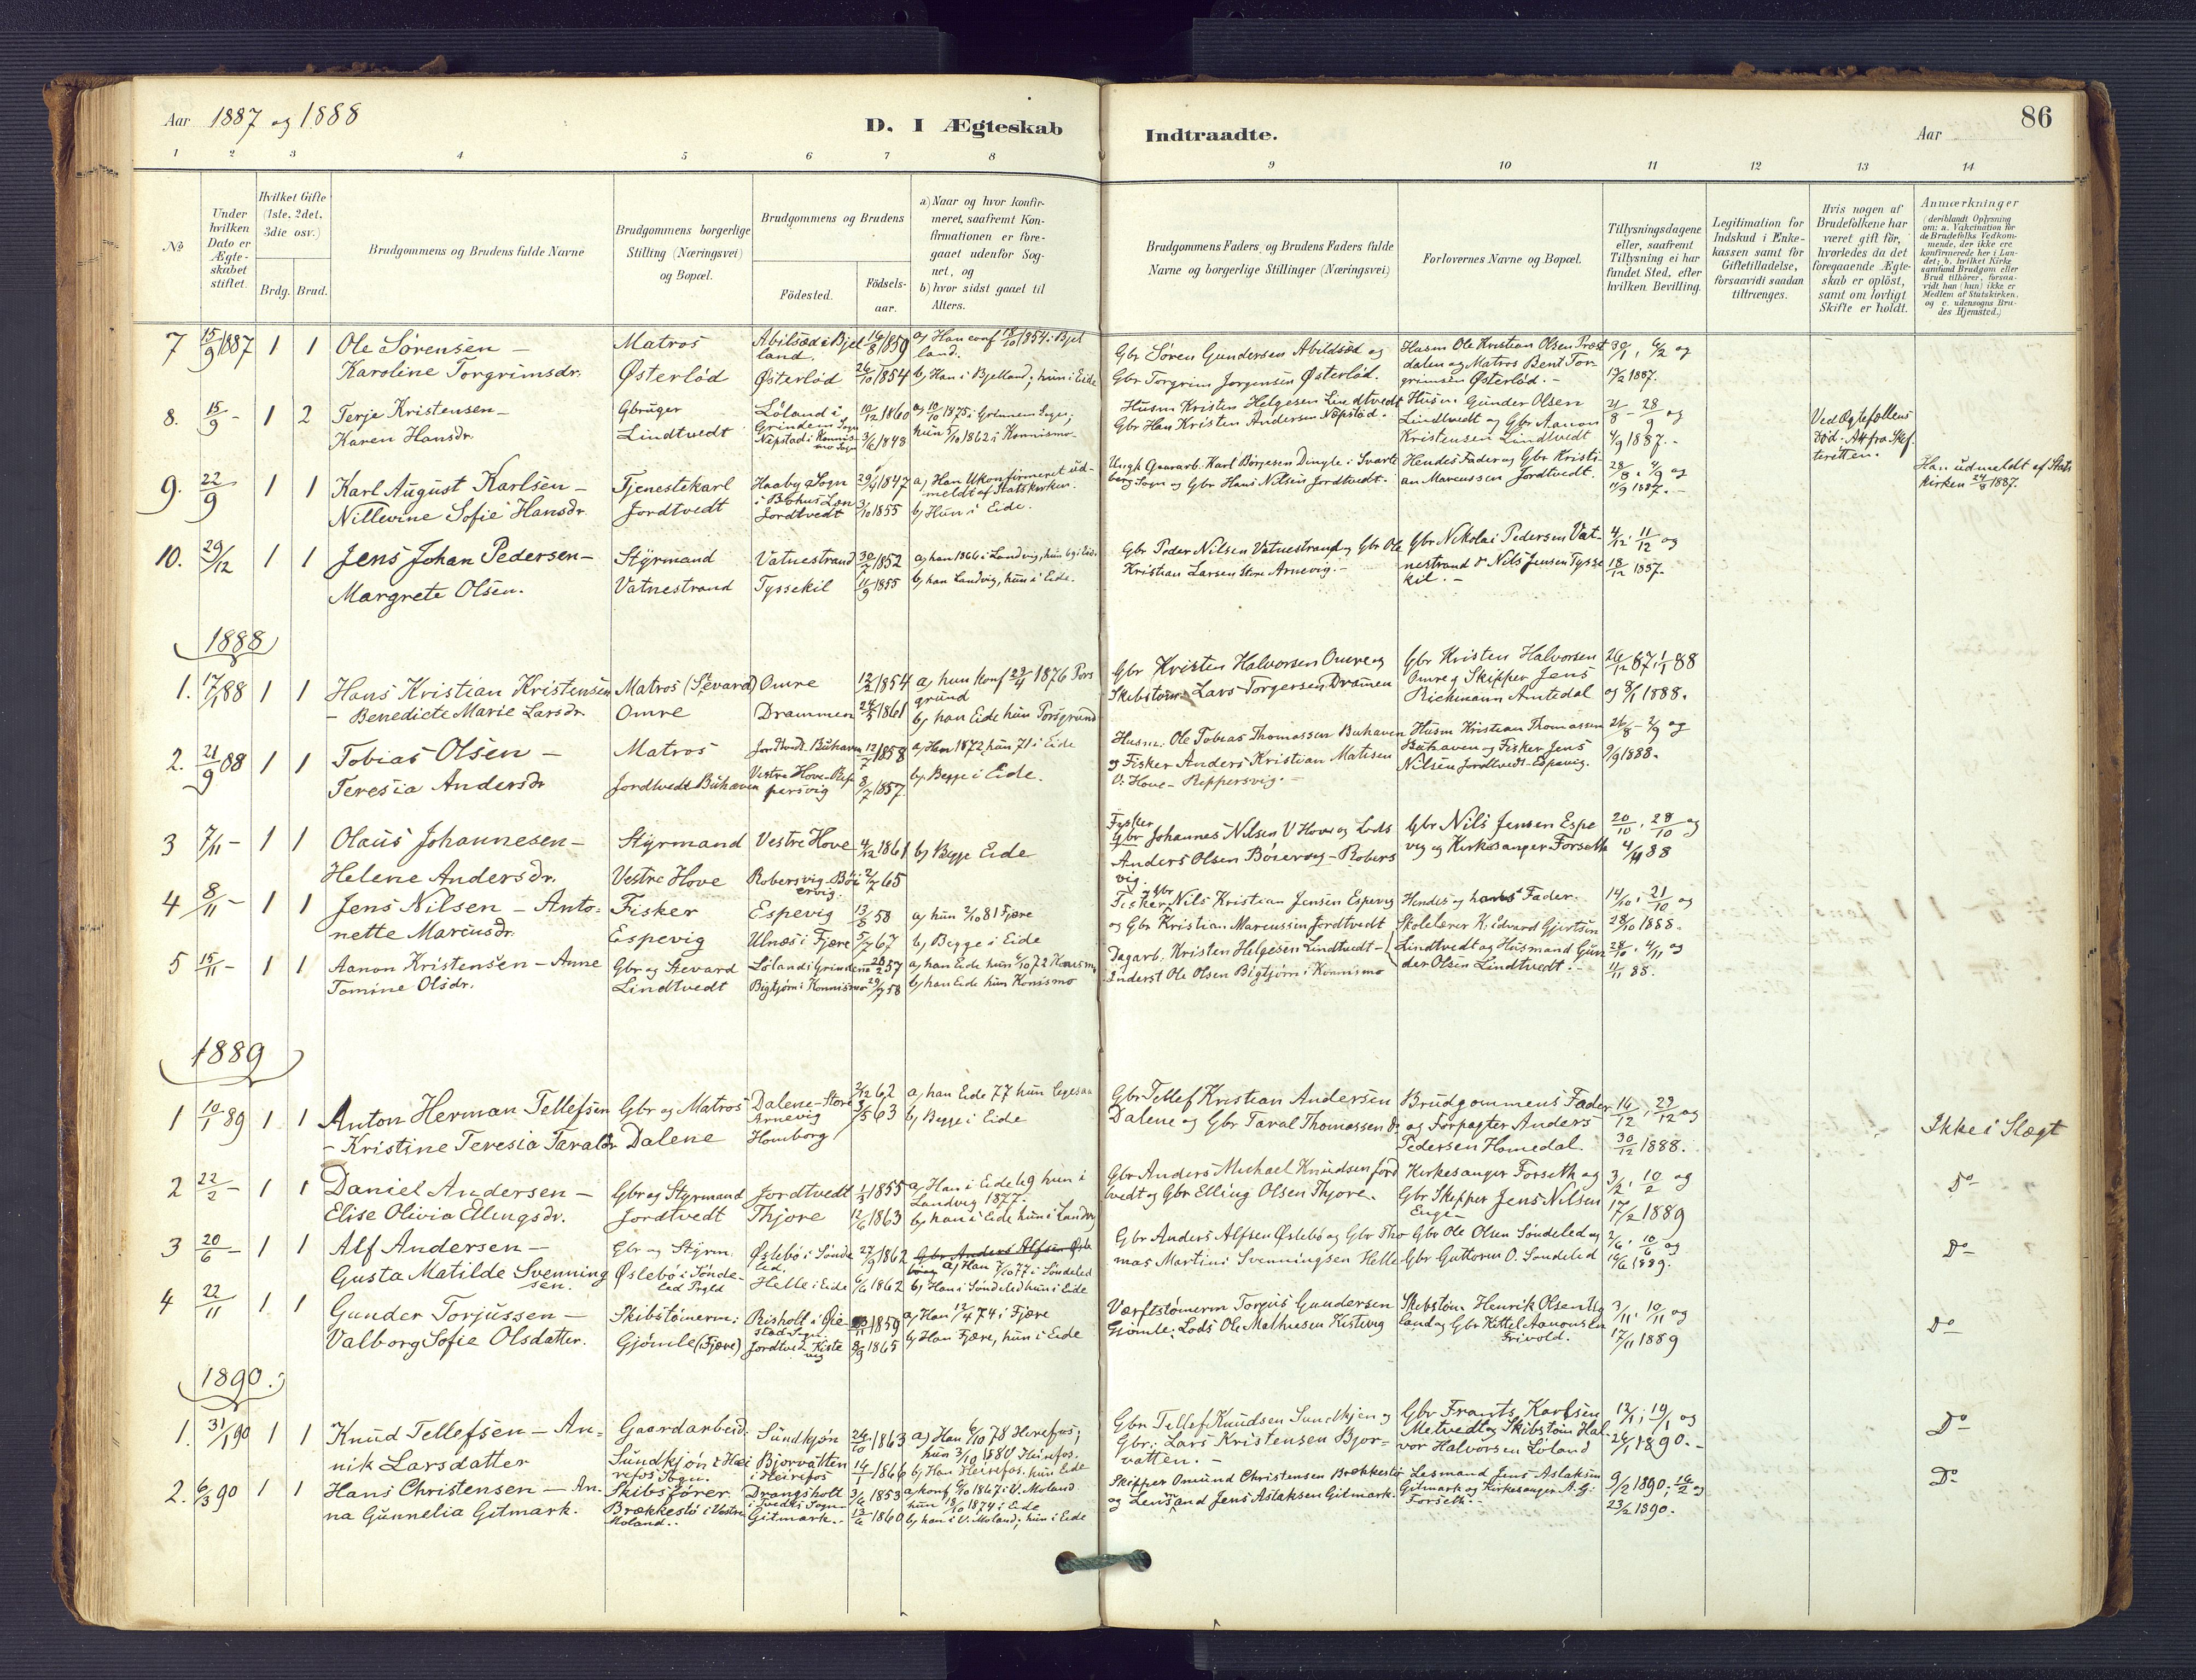 Aar 1887 og 1888
D. I Ægteskab
Indtraadte.
Aar
86
1 2 3 4 5 6 7 8 9 10 11 12 13 14
No
Under hvilken Dato er Ægteskabet stiftet.
Hvilket Gifte (1ste, 2det, 3die osv.)
Brdg. Brud.
Brudgommens og Brudens fulde Navne
Brudgommens borgerlige Stilling (Næringsvei) og Bopæl.
Brudgommens og Brudens
Födested.
Födsels-aar.
a) Naar og hvor konfirmeret, saafremt Konfirmationen er foregaaet udenfor Sognet, og
b) hvor sidst gaaet til Alters.
Brudgommens Faders og Brudens Faders fulde Navne og borgerlige Stillinger (Næringsvei)
Forlovernes Navne og Bopæl.
Tillysningsdagene eller, saafremt Tillysning ei har fundet Sted, efter hvilken Bevilling.
Legitimation for Indskud i Enkekassen samt for Giftetilladelse, forsaavidt saadan tiltrænges.
Hvis nogen af Brudefolkene har været gift för, hvorledes da det foregaaende Ægteskab er oplöst, samt om lovligt Skifte er holdt.
Anmærkninger
(deriblandt Oplysning om: a. Vakcination for de Brudefolks Vedkommende, der ikke ere konfirmerede her i Landet; b. hvilket Kirkesamfund Brudgom eller Brud tilhörer, forsaavidt han (hun) ikke er Medlem af Statskirken, og c. udensogns Brudes Hjemsted.)
7 15/9 1887 1 1 Ole Sörensen –
Karoline Torgrimsdr.
Matros
Østerlöd
Abilsæd i Bjelland. 16/8 1859
Østerlöd 26/10 1854
b) Han i Bjelland; hun i Eide
Gbr Sören Gundersen Abildsöd og
Gbr Torgrim Jörgensen Østerlöd.
Husm Ole Kristian Olsen Præst
dalen og Matros Bent Tor-
grimsen Østerlöd. –
30/1, 6/2 og
13/2 1887.
8. 15/9 – 1 2 Terje Kristensen –
Karen Hansdr.
Gbruger
Lindtvedt
Löland i
Grindem Sogn 10/12 1860
Nepstad i Konnismo Sogn 3/6 1848
a) 10/10 1875 i Grinnem Sogn;
hun 5/10 1862 i Konnismo
Husm Kristen Helgesen Lindtvedt
Gbr Han Kristen Andersen Nepstöd.
Husm. Gunder Olsen
Lindtvedt og Gbr Aanon
Kristensen Lindtvedt
21/8 – 28/8 og
4/9 1887. –
Ved Ægtefællens
Död. Att fra Skif
teretten.
9. 22/9 1 1 Karl August Karlsen –
Nillevine Sofie Hansdr
Tjenestekarl
Jordtvedt
Haaby Sogn
i Bohus Len 29/4 1847
Jordtvedt 3/10 1855
a) Han Ukonfirmeret ud-
meldt af Statskirken.
b) Hun i Eide.
Ungk Gaararb. Karl Börgesen Dingle i Svarte
berg Sogn og Gbr Hans Nilsen Jordtvedt.
Hendes Fader og Gbr Kristi-
an Marcussen Jordtvedt.
28/8, 4/9 og
11/9 1887. –
Han udmeldt af Stats
kirken 24/8 1887.
10. 29/12 1 1 Jens Johan Pedersen –
Margrete Olsen.
Styrmand
Vatnestrand
Vatnestrand 30/7 1852
Tyssekil 11/9 1855
a) han 1866 i Landvig, hun 69 i Eid.
b) han Landvig, hun i Eide.
Gbr Peder Nilsen Vatnestrand og Gbr Ole
Kristian Larsen Store Arnevig. –
Gbr Nikolai Pedersen Vat-
nestrand & Nils Jensen Tysse
kil. –
4/12, 11/12 og
18/12 1887.
1888
1. 17/1 88 1 1 Hans Kristian Kristensen
– Benedicte Marie Larsdr.
Matros (Stevard)
Omre
Omre 12/2 1854
Drammen 24/5 1861
a) hun Konf 23/4 1876 Pors
grund
b) han Eide hun Porsgrund
Gbr Kristen Halvorsen Omre og
Skibstöm. Lars Torgersen Dramen
Gbr Kristen Halvorsen
Omre og Skipper Jens
Rickmann Amtedal
26/12 87, 1/1 88
og 8/1 1888.
2. 21/9 88 1 1 Tobias Olsen –
Teresia Andersdr
Matros
Jordtvedt Buhaven
Jordtvedt. Buhaven 12/7 1858
Vestre Hove-Rep
persvig 8/7 1857.
a) Han 1872, hun 71 i Eide
b) Begge i Eide.
Husm. Ole Tobias Thomassen Buhaven
og Fisker Anders Kristian Matisen
V. Hove – Reppersvig. –
Husm Kristian Thomassen
Buhaven og Fisker Jens
Nilsen Jordtvedt-Espevig.
26/8 – 2/9 og
9/9 1888.
3 7/11 – 1 1 Olaus Johannesen –
Helene Andersdr.
Styrmand
Vestre Hove
Vestre Hove 4/12 1861
Robersvig-Böi
ervig. 2/7 65
b) Begge Eide
Fisker
Gbr Johannes Nilsen V Hove og Lods
Anders Olsen Böiervig – Robers
vig.
Gbr Nils Jensen Espe
vig og Kirkesanger Forseth
20/10, 28/10 og
4/11 88
4 8/11 – 1 1 Jens Nilsen – Anto-
nette Marcusdr.
Fisker
Espevig
Espevig 13/8 58
Ulnæs i Fjære 5/7 67
a) hun 2/10 81 Fjære
b) Begge i Eide
Fisker og Gbr Nils Kristian Jensen Espevig
og Gbr Kristian Marcussen Jordtvedt
Hendes og hans Fader.
Skolelærer K. Edvard Gjertsen
14/10, 21/10 og
28/10 1888.
5 15/11 – 1 1 Aanon Kristensen – Anne
Tomine Olsdr.
Gbr og Stevard
Lindtvedt
Löland i Grindem 28/2 57
Bigtjörn i Konnismo 29/7 58
a) han Eide hun 6/10 72 Konism
b) han Eide hun Konismo
Dagarb. Kristen Helgesen Lindtvedt –
Inderst Ole Olsen Bigtjörn i Konnismo
Lindtvedt og Husmand Gun
der Olsen Lindtvedt. –
28/10, 4/11 og
11/11 88.
1889
1 10/1 89 1 1 Anton Herman Tellefsen
– Kristine Teresia Taralsdr
Gbr og Matros
Dalene
Dalene-Store
Arnevig 2/12 62
Homborg 3/5 63
a) han Eide 77 hun ligesaa
b) Begge i Eide
Gbr Tellef Kristian Andersen
Dalene og Gbr Taral Thomassen
Brudgommens Fader
og Forpagter Anders
Pedersen Homedal
16/12, 23/12 og
30/12 1888.
Ikke i Slægt
2 22/2 – 1 1 Daniel Andersen –
Elise Olivia Ellingsdr.
Gbr og Styrmand
Jordtvedt
Jordtvedt 1/3 1855
Thjore 12/6 1863
a) Han i Eide 69 hun i
Landvig 1877.
b) han i Eide hun i Landv
Gbr Anders Michael Knudsen Jord
tvedt og Gbr Elling Olsen Thjore.
Kirkesanger Forseth og
Gbr Skipper Jens Nilsen
Enge –
3/2, 10/2 og
17/2 1889
Do
3 20/6 – 1 1 Alf Andersen –
Gusta Matilde Svenning
sen.
Gbr og Styrm.
Øslebö i Sönde-
led Prgld
Øslebö i Sönde
led. 27/9 1862
Helle i Eide 6/6 1862
Gbr Anders Alfsen Øsle
a) Han 7/10 77 i Söndeled
b) Han i Söndeled hun i Eide
Gbr Anders Alfsen Øslebö og Gbr Tho
mas Martin Svenningsen Helle
Gbr Ole Olsen Söndeled og
Gbr Guttorm O. Söndeled
2/6, 10/6 og
16/6 1889.
Do
4 22/11 1 1 Gunder Torjussen –
Valborg Sofie Olsdatter.
Skibstömerm:
Gjömle (Fjære)
Risholt i Øie-
stad Sogn. 1859
Jordtvedt Kiste
vig 8/9 1865
a) Han 12/4 74 i Fjære
b) Han Fjære, hun i Eide
Værftstömerm Torjus Gundersen
Gjömle, Lods Ole Mathisen Kistevig
Skibstöm. Henrik Olsen Ug
land og Gbr Kittel Aanonsen
Frivold.
3/11, 10/11 og
17/11 1889
Do
1890.
1. 31/1 90 1 1 Knud Tellefsen – An-
nik Larsdatter
Gaardarbeid.
Sundkjön i Hæ
refos Sogn.
Sundkjön 26/10 1863
Björvatten
i Heirefos 14/1 1866
a) Han 6/10 78 Herefos;
hun 3/10 1880 Heirefos.
b) Han Heirefos. hun Eide
Gbr Tellef Knudsen Sundkjen og
Gbr: Lars Kristensen Bjor-
vatten. –
Gbr Frants Karlsen
Metvedt og Skibstöm Hal-
vor Halvorsen Löland
12/1, 19/1 og
26/1 1890. –
Do
2. 6/3 90 1 1 Hans Christensen – An-
na Gunnelia Gitmark.
Skibsförer.
Brækkestö i Vestre
Moland..
Drangsholt
i Tveits Sogn 3/6 1853
Gitmark. 13/6 1860
a) konf 6/10 1867 i V. Moland.
hun 18/10 1874 i Eide
b) han i V. Moland; hun i Eide
Skipper Omund Christensen Brekkestö
og Lensmand Jens Aslaksen Gitmark.
Lesmand Jens Aslaksen
Gitmark og Kirkesanger A. G.
Forseth. –
9/2 1890; 16/2 og
23/2 1890.
Do